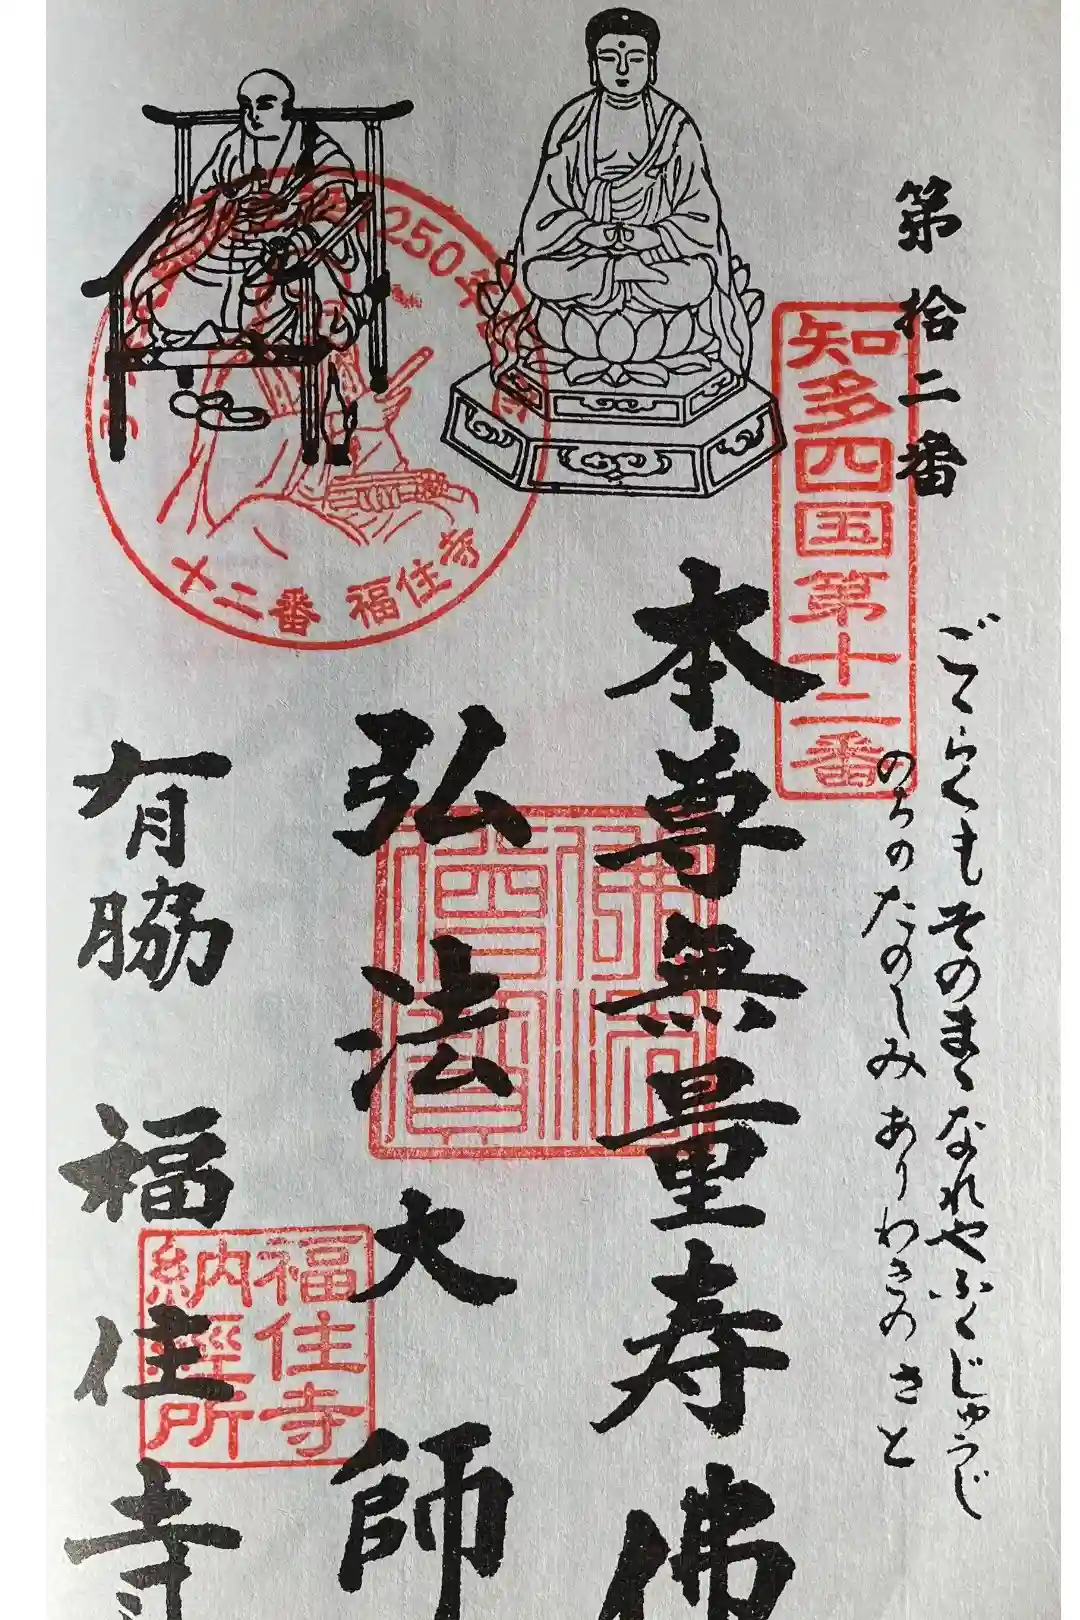 第拾二番
知多四国第十二番
ごくらくもそのまゝなれやふくじゅうじ
のちのたのしみありわきのさと
本尊無量寿佛
弘法大師
有脇 福住寺
250年
十二番 福住寺
佛法僧寶
福住寺
納経所